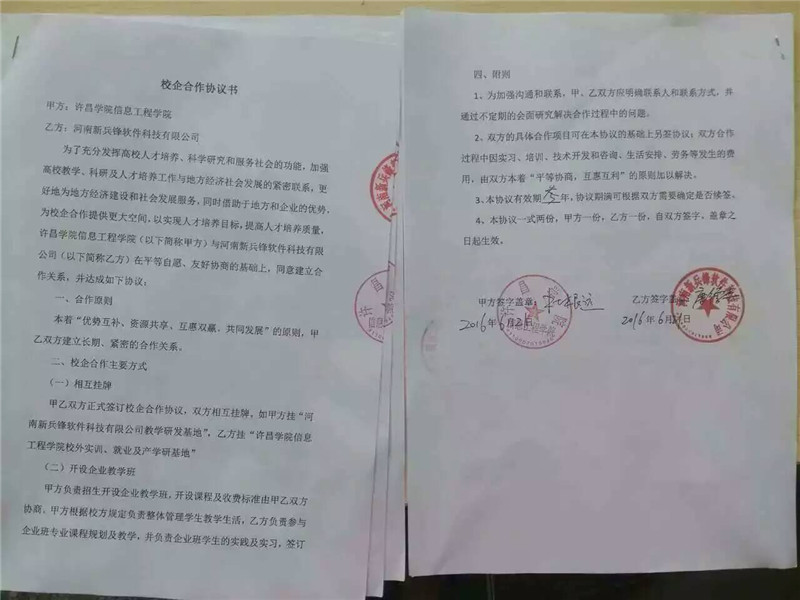 校企合作协议书
甲方：许昌学院信息工程学院
乙方：河南新兵锋软件科技有限公司
为了充分发挥高校人才培养、科学研究和服务社会的功能，加强
高校教学、科研及人才培养工作与地方经济社会发展的紧密联系，更
好地为地方经济建设和社会发展服务，同时借助于地方和企业的优势，
为校企合作提供更大空间，以实现人才培养目标，提高人才培养质量，
许昌学院信息工程学院（以下简称甲方）与河南新兵锋软件科技有限
公司（以下简称乙方）在平等自愿、友好协商的基础上，同意建立合
作关系，并达成如下协议：
一、合作原则
本着“优势互补、资源共享、互惠双赢、共同发展”的原则，甲
乙双方建立长期、紧密的合作关系。
二、校企合作主要方式
（一）相互挂牌
甲乙双方正式签订校企合作协议，双方相互挂牌，如甲方挂“河
南新兵锋软件科技有限公司教学研发基地”，乙方挂“许昌学院信息
工程学院校外实训、就业及产学研基地”
（二）开设企业教学班
甲方负责招生开设企业教学班，开设课程及收费标准由甲乙双方
协商。甲方根据校方规定负责整体管理学生教学生活，乙方负责参与
企业班专业课程规划及教学，并负责企业班学生的实践及实习，签订
四、附则
1、为加强沟通和联系，甲、乙双方应明确联系人和联系方式，并
通过不定期的会面研究解决合作过程中的问题。
2、双方的具体合作项目可在本协议的基础上另签协议；双方合作
过程中因实习、培训、技术开发和咨询、生活安排、劳务等发生的费
用，由双方本着“平等协商，互惠互利”的原则加以解决。
3、本协议有效期叁年，协议期满可根据双方需要确定是否续签。
4、本协议一式两份，甲方一份，乙方一份，自双方签字，盖章之
日起生效。
甲方签字盖章：
乙方签字盖
2016年6月21日
2016年6月21日
河南新兵锋软件科技有限公司